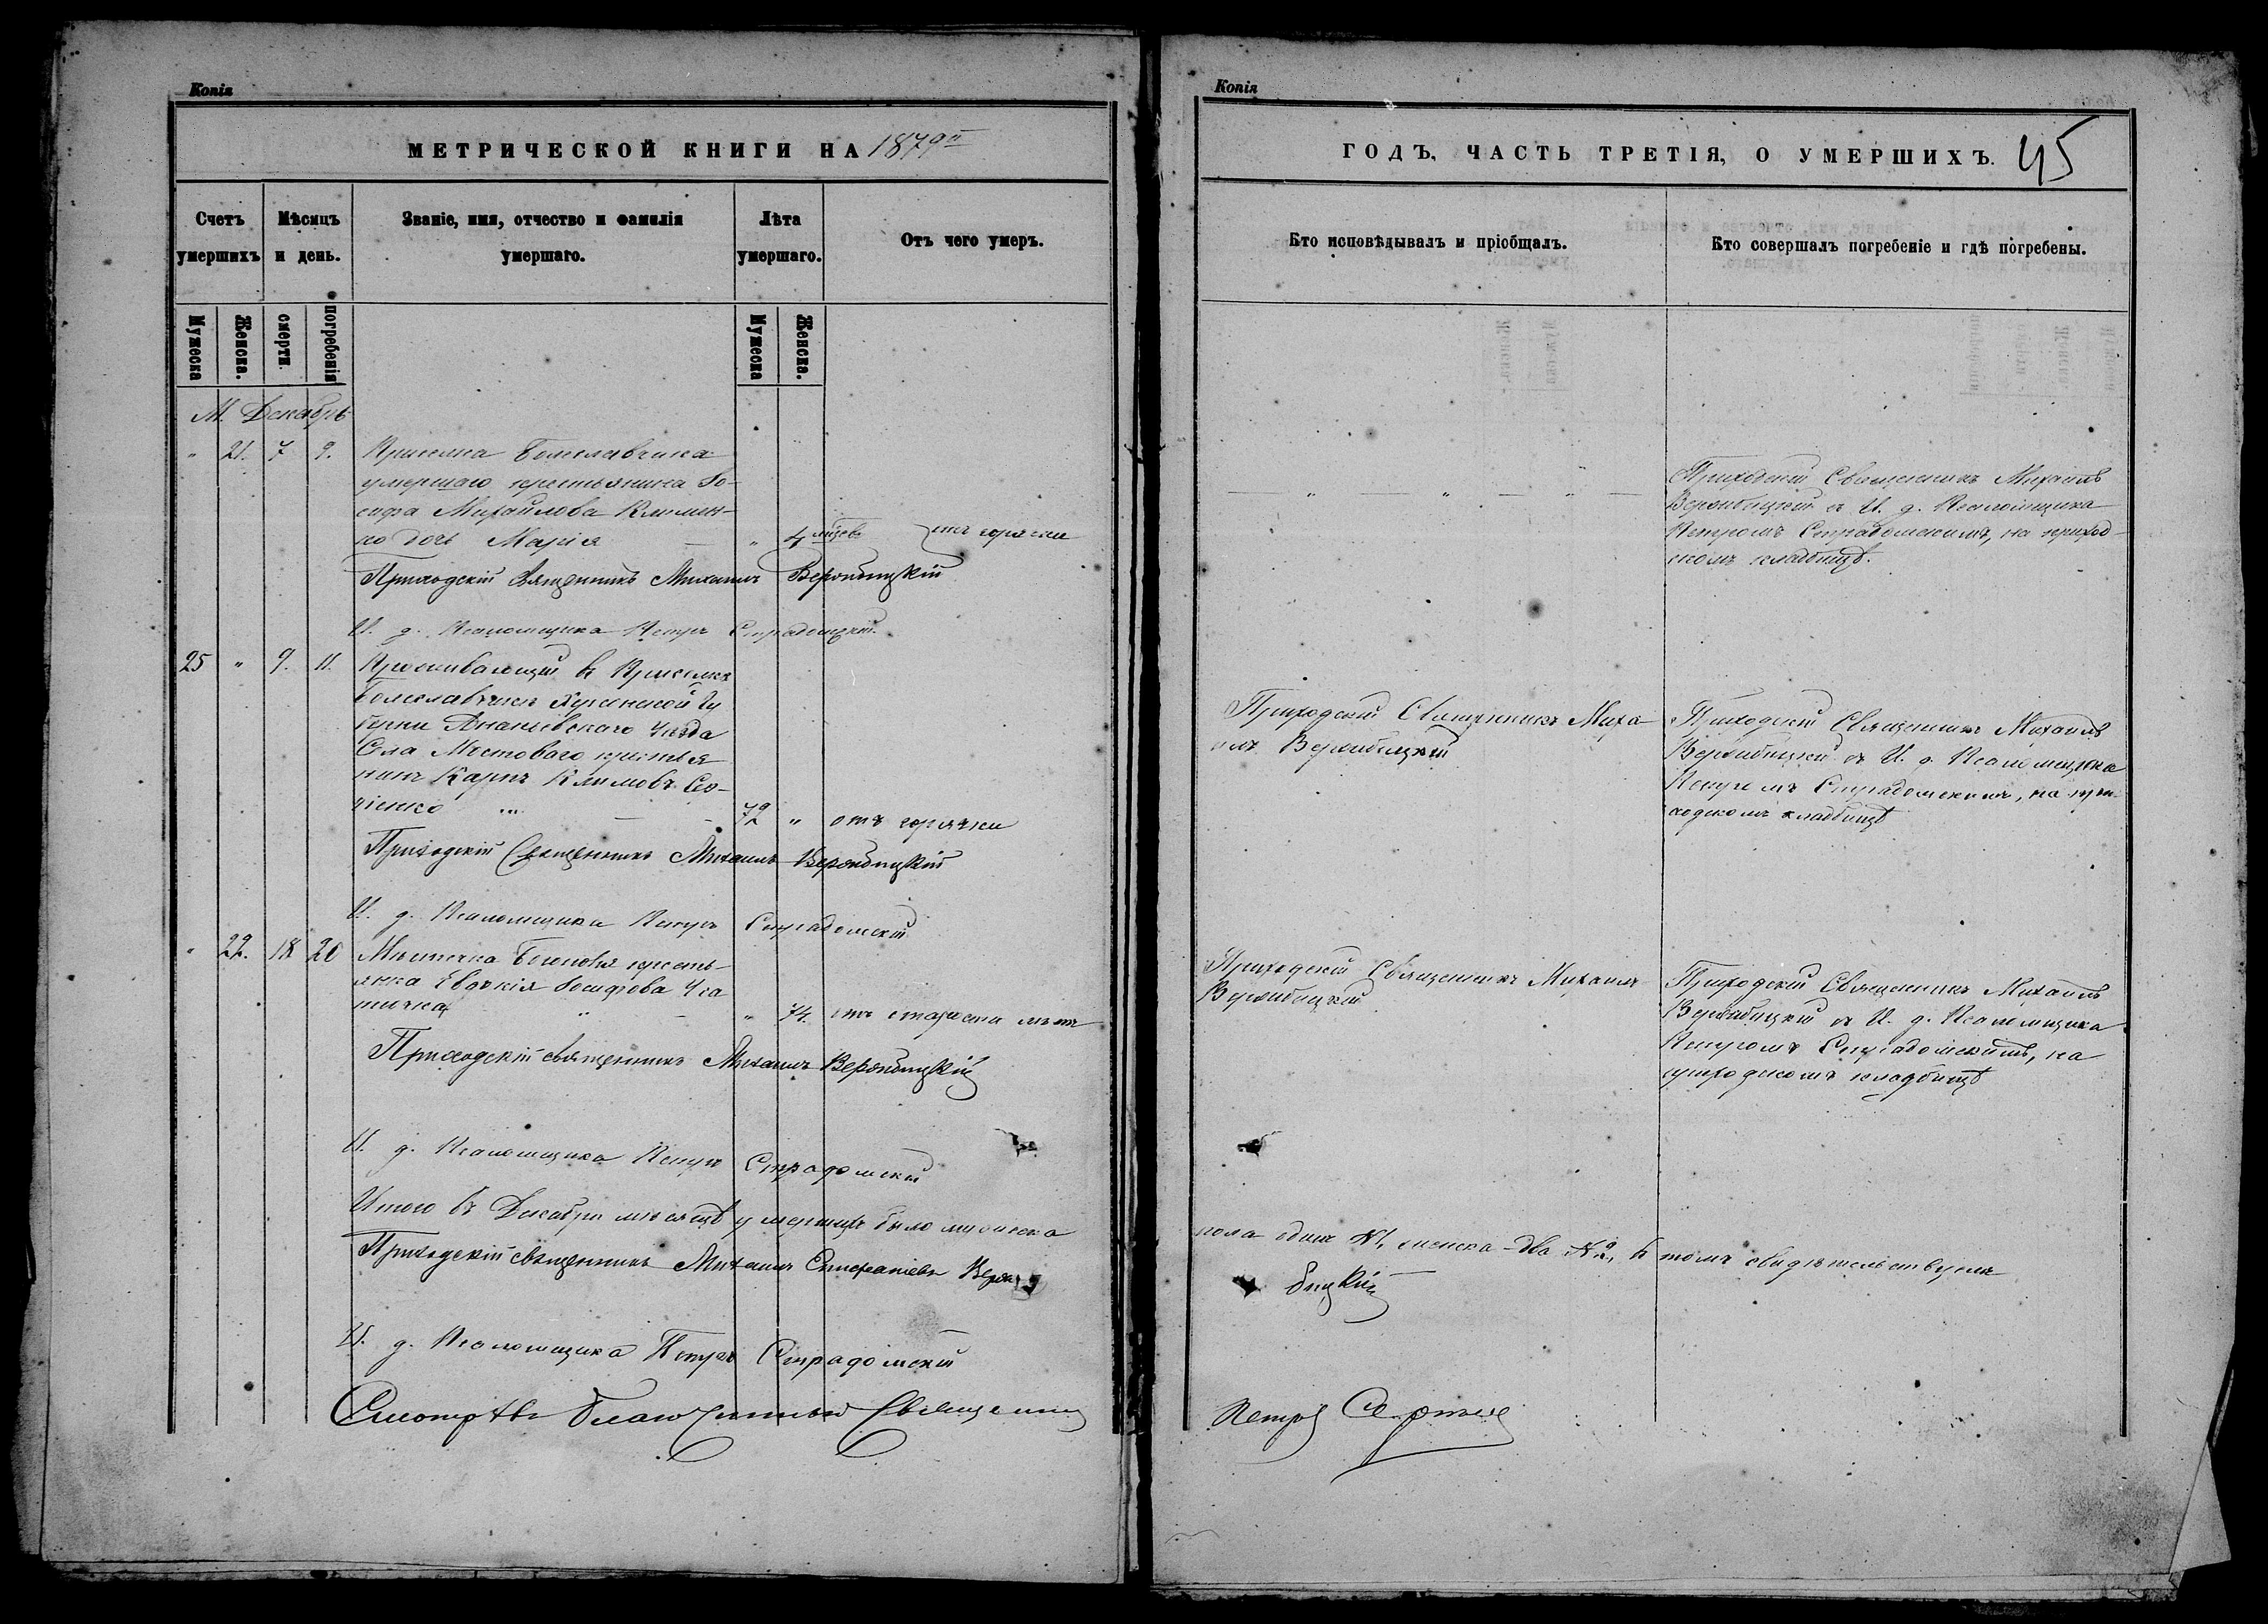 Копія
МЕТРИЧЕСКОЙ КНИГИ НА 1879й
Счетъ умершихъ
Мѣсяцъ и день.
Званіе, имя, отчество и фамилія умершаго.
Лѣта умершаго.
Отъ чего умеръ.
Мужеска
Женска.
смерти
погребенія
Мужеска
Женска.
М. Декабрь
" 21. 7 9. Приселка Болеславчика
умершаго крестьянина Іо-
сифа Михайлова Климен-
ко дочь Марія — " 4 мѣсяц. отъ горячки
Приходскій Священникъ Михаилъ Вержбицкій
И. д. Псаломщика Петръ Страдомскій
25 " 9. 11. Проживающій въ Приселкѣ
Болеславчикѣ Херсонской Гу
берніи Ананьевскаго Уѣзда
Села Мостоваго крестья
нинъ Карпъ Климовъ
72 " отъ горячки
Приходскій Священникъ Михаилъ Вержбицкій
И. д. Псаломщика Петръ Страдомскій
" 22. 18 20 крестъ-
янка Евдокія Іосифова
" 74. отъ старости лѣтъ
Приходскій Священникъ Михаилъ Вержбицкій
И. д. Псаломщика Петръ Страдомскій
Итого въ Декабрѣ мѣсяцѣ умершихъ было мужеска
Приходскій Священникъ Михаилъ Стефаніевъ Верж
И. д. Псаломщика Петръ Страдомскій
Смотрѣлъ Благочинный Священникъ
Копія
ГОДЪ, ЧАСТЬ ТРЕТІЯ, О УМЕРШИХЪ. 45
Кто исповѣдывалъ и пріобщалъ.
Кто совершалъ погребеніе и гдѣ погребены.
— " — " — " —
Приходскій Священникъ Михаилъ
Вержбицкій съ И. д. Псаломщика
Петромъ Страдомскимъ, на приход-
скомъ кладбищѣ.
Приходскій Священникъ Миха
илъ Вержбицкій
Приходскій Священникъ Михаилъ
Вержбицкій съ И. д. Псаломщика
Петромъ Страдомскимъ, на при-
ходскомъ кладбищѣ
Приходскій Священникъ Михаилъ
Вержбицкій
Приходскій Священникъ Михаилъ
Вержбицкій съ И. д. Псаломщика
Петромъ Страдомскимъ, на
приходскомъ кладбищѣ
пола одинъ №1, женска - два №2, въ томъ свидѣтельствуемъ
бицкій
Петръ